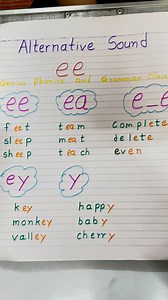 Alternative Sound
ee
Genius Phonics and Grammar Classes
ee ea e_e
feet team complete
sleep meat delete
sheep teach even
ey y
key happy
monkey baby
valley cherry